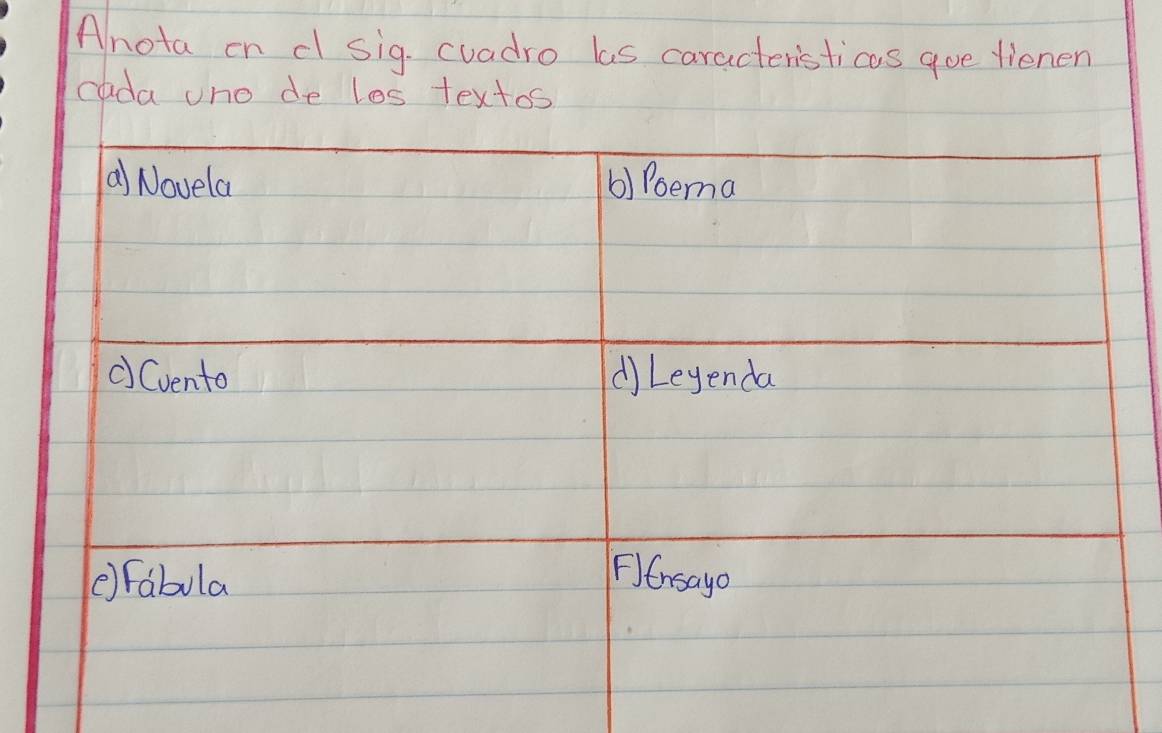 Anota en el sig. cuadro las características que tienen
cada uno de los textos
a) Novela
b) Poema
c) Cuento
d) Leyenda
e) Fábula
F) Ensayo